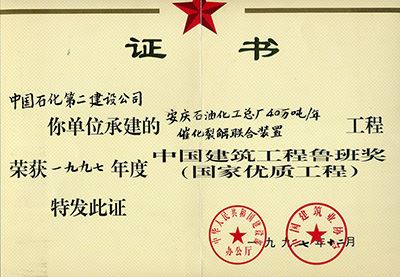 证书
中国石化第二建设公司
你单位承建的 安庆石油化工总厂40万吨/年
催化裂解联合装置 工程
荣获一九九七年度 中国建筑工程鲁班奖
(国家优质工程)
特发此证
中华人民共和国建设部
办公厅
中国建筑业协会
一九九七年十二月